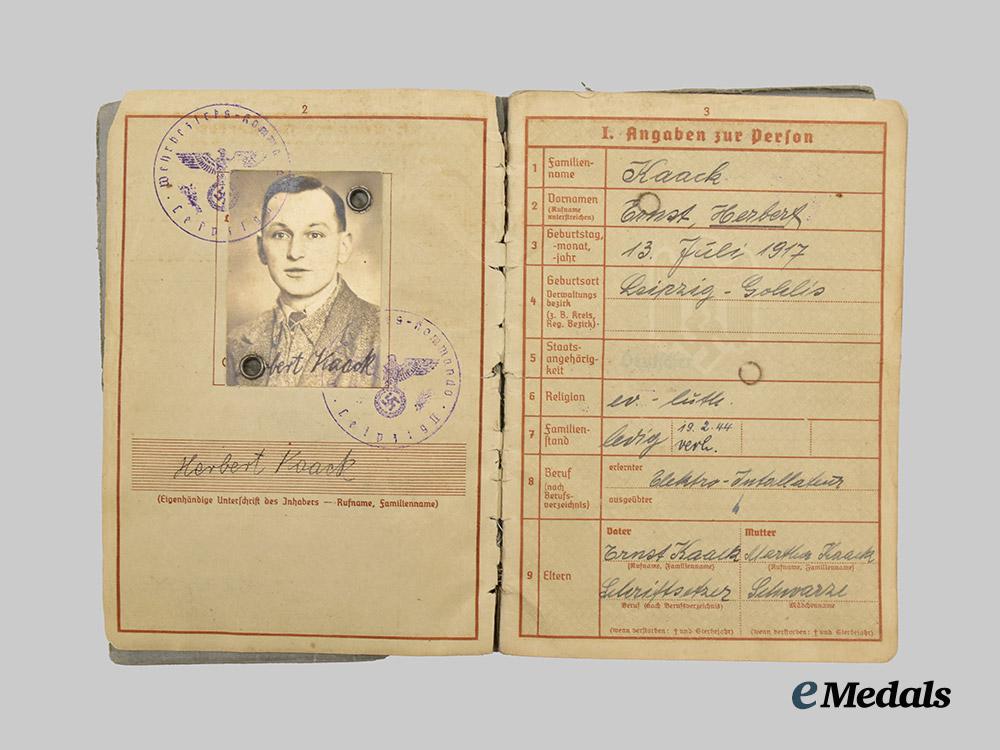 2
Wehrbezirks-Komma
Leipzig
Herbert Kaack
Leipzig II
Herbert Kaack
(Eigenhändige Unterschrift des Inhabers — Rufname, Familienname)
3
I. Angaben zur Person
1 Familien-
name
Kaack
2 Vornamen
(Rufname
unterstreichen)
Ernst, Herbert
3 Geburtstag,
-monat,
-jahr
13. Juli 1917
4 Geburtsort
Verwaltungs
bezirk
(z. B. Kreis,
Reg. Bezirk)
Leipzig - Gohlis
5 Staats-
angehörig-
keit
6 Religion
ev. - luth.
7 Familien-
stand
ledig
19.2.44
verh.
8 Beruf
(nach
Berufs-
verzeichnis)
erlernter
Elektro-Intallateur
ausgeübter
9 Eltern
Vater Mutter
Ernst Kaack Martha Kaack
(Rufname, Familienname) (Rufname, Familienname)
Schriftsetzer Schwarze
Beruf (nach Berufsverzeichnis) Mädchenname
(wenn verstorben: † und Sterbejahr) (wenn verstorben: † und Sterbejahr)
eMedals